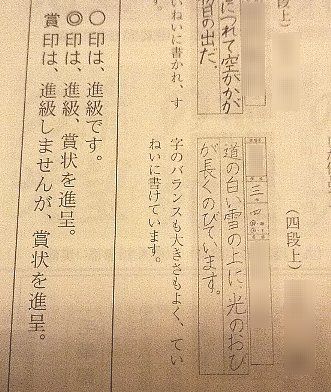 段上）
につれて空がかがが
日の出だ。
いねいに書かれ、す
（四段上）
三
四
道の白い雪の上に、光のおび
が長くのびています。
字のバランスも大きさもよく、てい
ねいに書けています。
○印は、進級です。
◎印は、進級、賞状を進呈。
賞印は、進級しませんが、賞状を進呈。